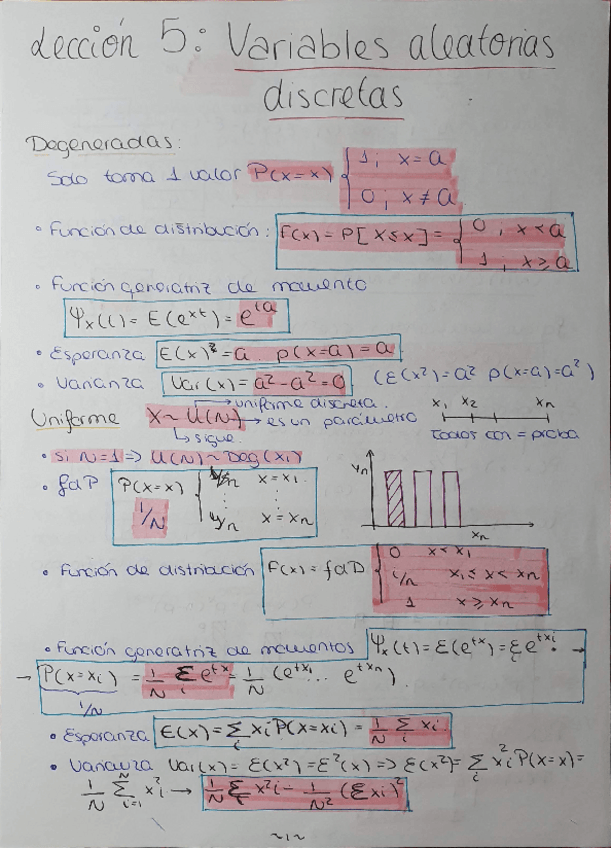 Lección 5: Variables aleatorias
discretas
Degeneradas:
Solo toma 1 valor P(X=x) { 1; x=a
0; x≠a
• Función de distribución: F(x) = P[X≤x] = { 0; x<a
1; x≥a
• Función generatriz de momento
Ψx(t) = E(e^xt) = e^ta
• Esperanza E(x)² = a. p(x=a) = a
• Varianza Var(x) = a²-a² = 0 (E(x²) = a² p(x=a) = a²)
→ uniforme discreta.
Uniforme X~U(N) → es un parámetro
↳ sigue.
x₁ x₂ xn
todos con = proba
• si N=1 ⇒ U(N)~Deg(x₁)
• fdP P(X=x) { 1/n x=x₁
1/N
⋮ ⋮
1/n x=xn
1/n
xn
• Función de distribución F(x) = fdD { 0 x<x₁
i/n x₁≤x<xn
1 x≥xn
• Función generatriz de momentos Ψx(t) = E(e^tx) = Σi e^txi · →
→ P(x=xi) = 1/N Σi e^tx = 1/N (e^tx₁ ... e^txn)
1/N
• Esperanza E(x) = Σi xi P(x=xi) = 1/N Σi xi
• Varianza Var(x) = E(x²) = E²(x) => E(x²) = Σi xi² P(x=x) =
1/N Σ(i=1, N) xi² → 1/N Σi x²i - 1/N² (Σxi)²
~1~